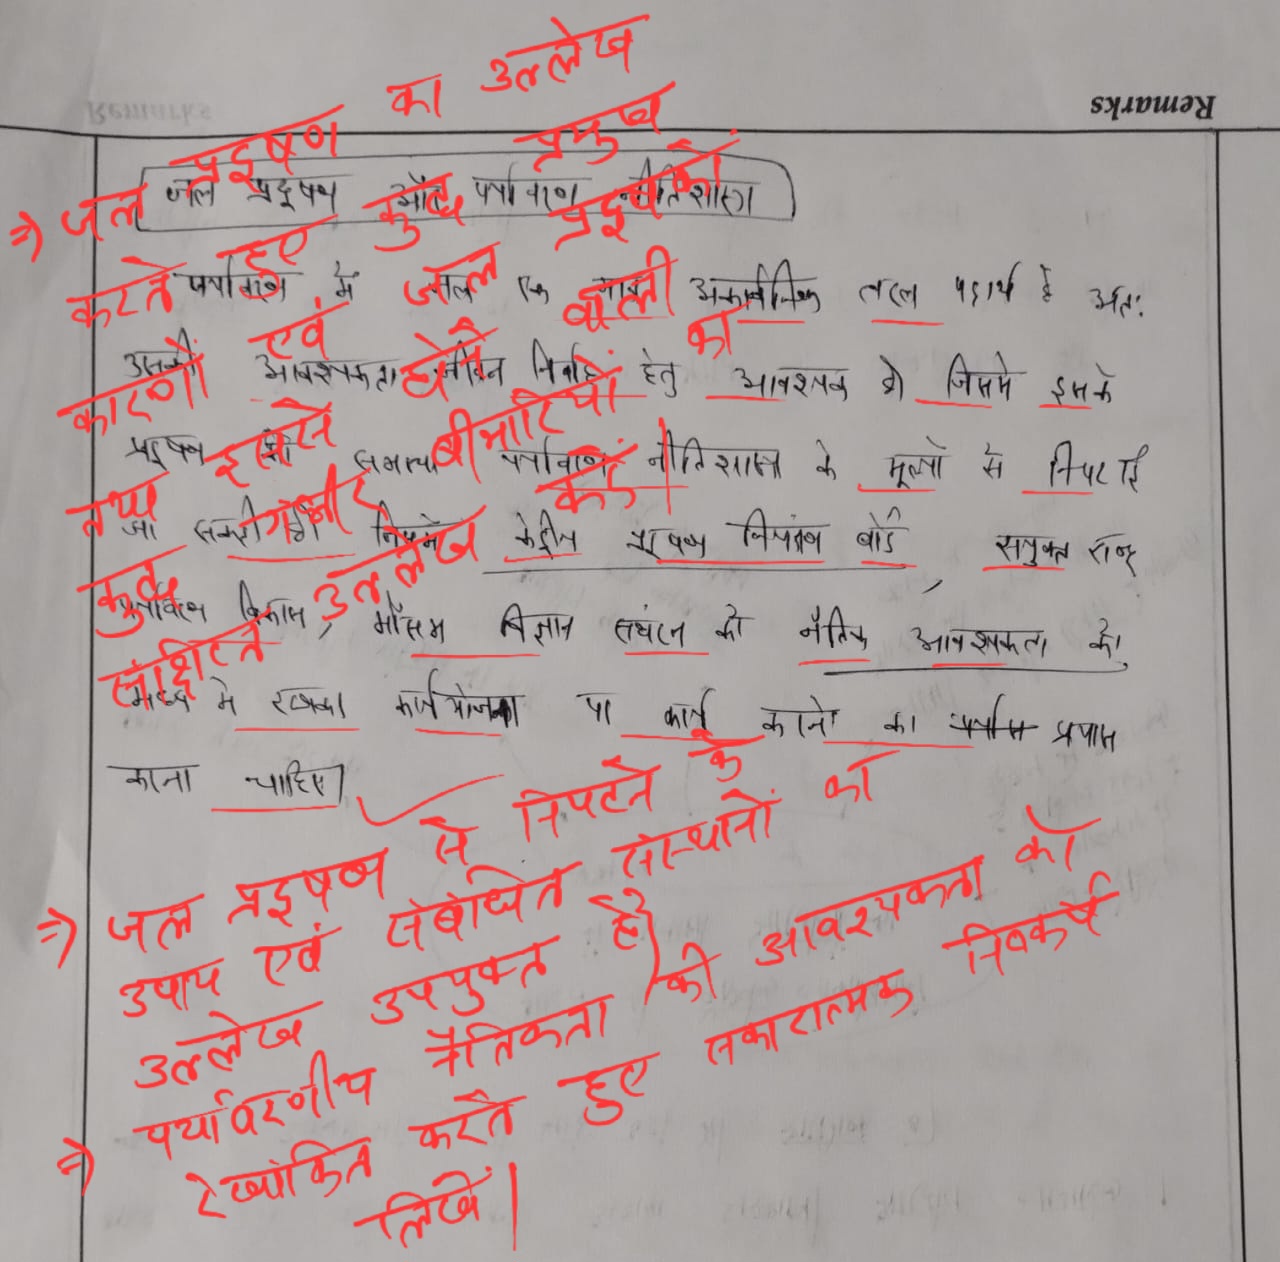 Remarks
जल प्रदूषण और पर्यावरण नीतिशास्त्र
पर्यावरण में जल एक अकार्बनिक तरल पदार्थ है अतः
उसकी आवश्यकता जीवन निर्वाह हेतु आवश्यक है जिसमें इसके
प्रदूषण की समस्या पर्यावरण नीतिशास्त्र के मूल्यों से निपटाई
जा सकती है। जिसमें केंद्रीय प्रदूषण नियंत्रण बोर्ड, संयुक्त राष्ट्र
पर्यावरण विकास, मौसम विज्ञान संगठन को नैतिक आवश्यकता को
मध्य में रखकर कार्य योजना पर कार्य करने का प्रयास
करना चाहिए।
⇒ जल प्रदूषण का उल्लेख
करते हुए कुछ प्रमुख
कारणों एवं जल प्रदूषकों
तथा इससे होने वाली
कुछ गंभीर बीमारियों का
संक्षिप्त उल्लेख करें।
⇒ जल प्रदूषण से निपटने के
उपाय एवं संबंधित संस्थानों का
उल्लेख उपयुक्त है।
⇒ पर्यावरणीय नैतिकता की आवश्यकता को
रेखांकित करते हुए सकारात्मक निष्कर्ष
लिखें।